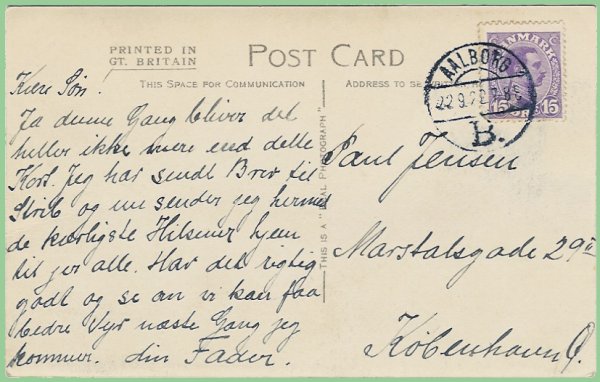 PRINTED IN
GT. BRITAIN
POST CARD
THIS SPACE FOR COMMUNICATION
ADDRESS TO BE
THIS IS A "REAL PHOTOGRAPH"
Kære Søn.
Ja denne Gang bliver det
heller ikke mere end dette
Kort. Jeg har sendt Brev til
Strib og nu sender jeg hermed
de kærligste Hilsener hjem
til jer alle. Hav det rigtig
godt og se om vi kan faa
bedre Vejr næste Gang jeg
kommer. din Fader.
Paul Jensen
Marstalsgade 29
København Ø.
DANMARK
15 ØRE 15
AALBORG
22.9.
B.